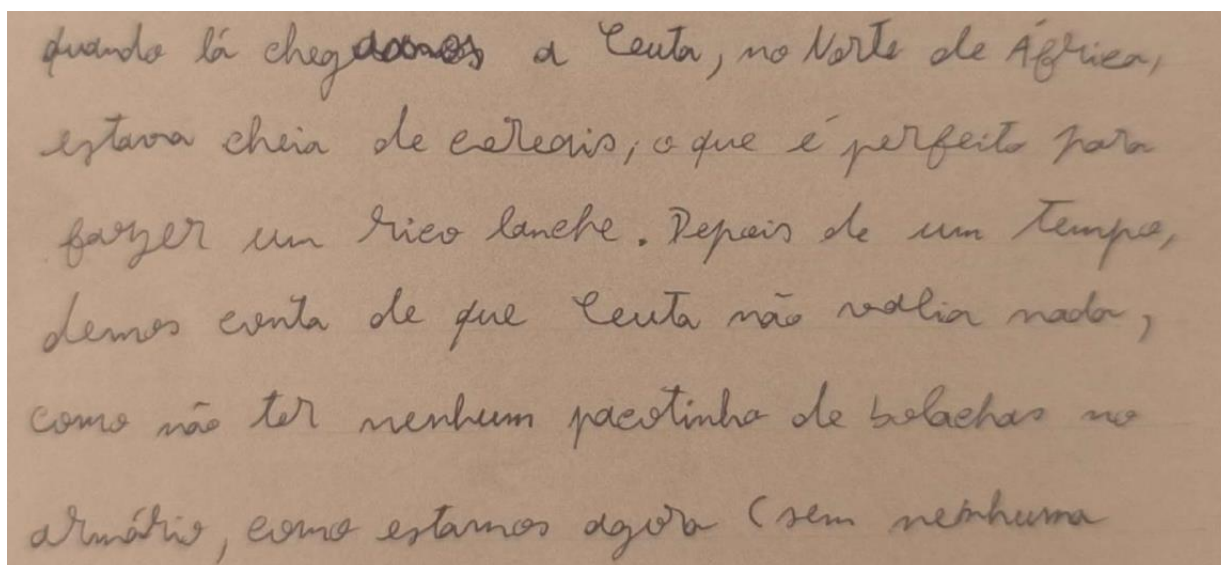 quando lá chegamos a Ceuta, no Norte de África,
estava cheia de cereais, o que é perfeito para
fazer um rico lanche. Depois de um tempo,
demos conta de que Ceuta não valia nada,
como não ter nenhum pacotinho de bolachas no
armário, como estamos agora (sem nenhuma